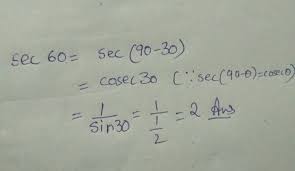 sec 60 = sec (90-30)
= cosec 30 (∵ sec(90-θ)=cosecθ)
= 1/sin30 = 1/(1/2) = 2 Ans